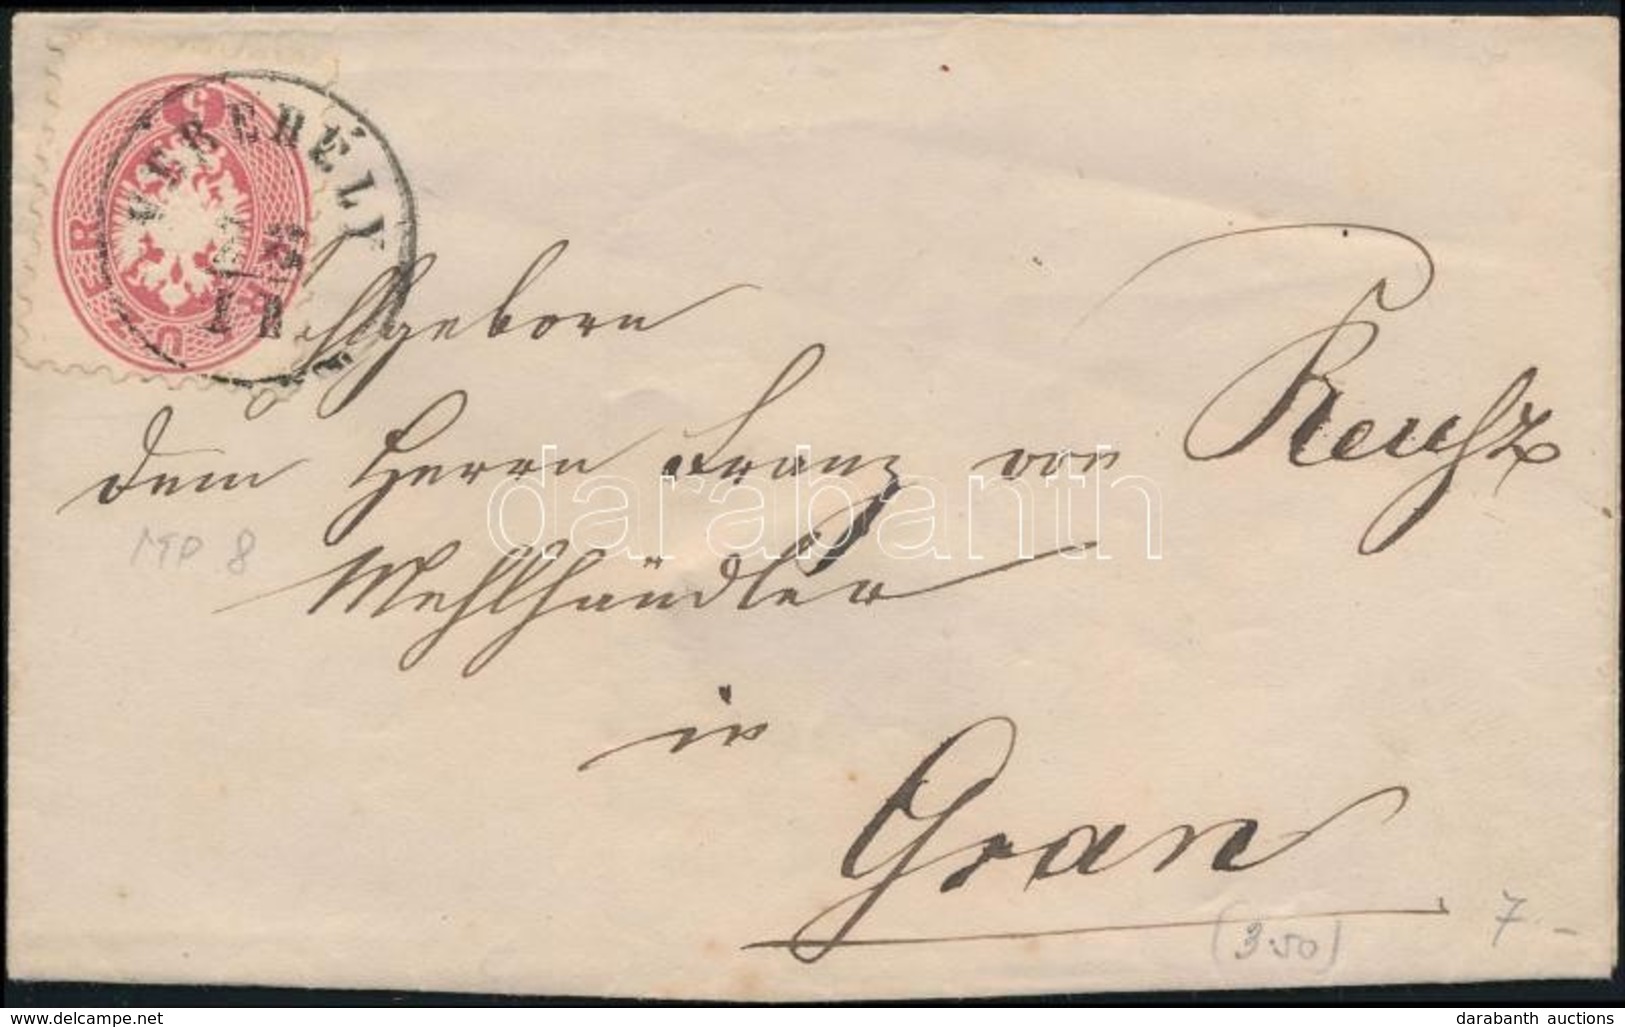 5 KREUZER
VEREBÉLY
Wohlgeborn
dem Herrn Franz von Reusz
Mehlhändler
in
Gran
MTP 8
(3.50)
7.-
darabanth
www.delcampe.net
darabanth auctions